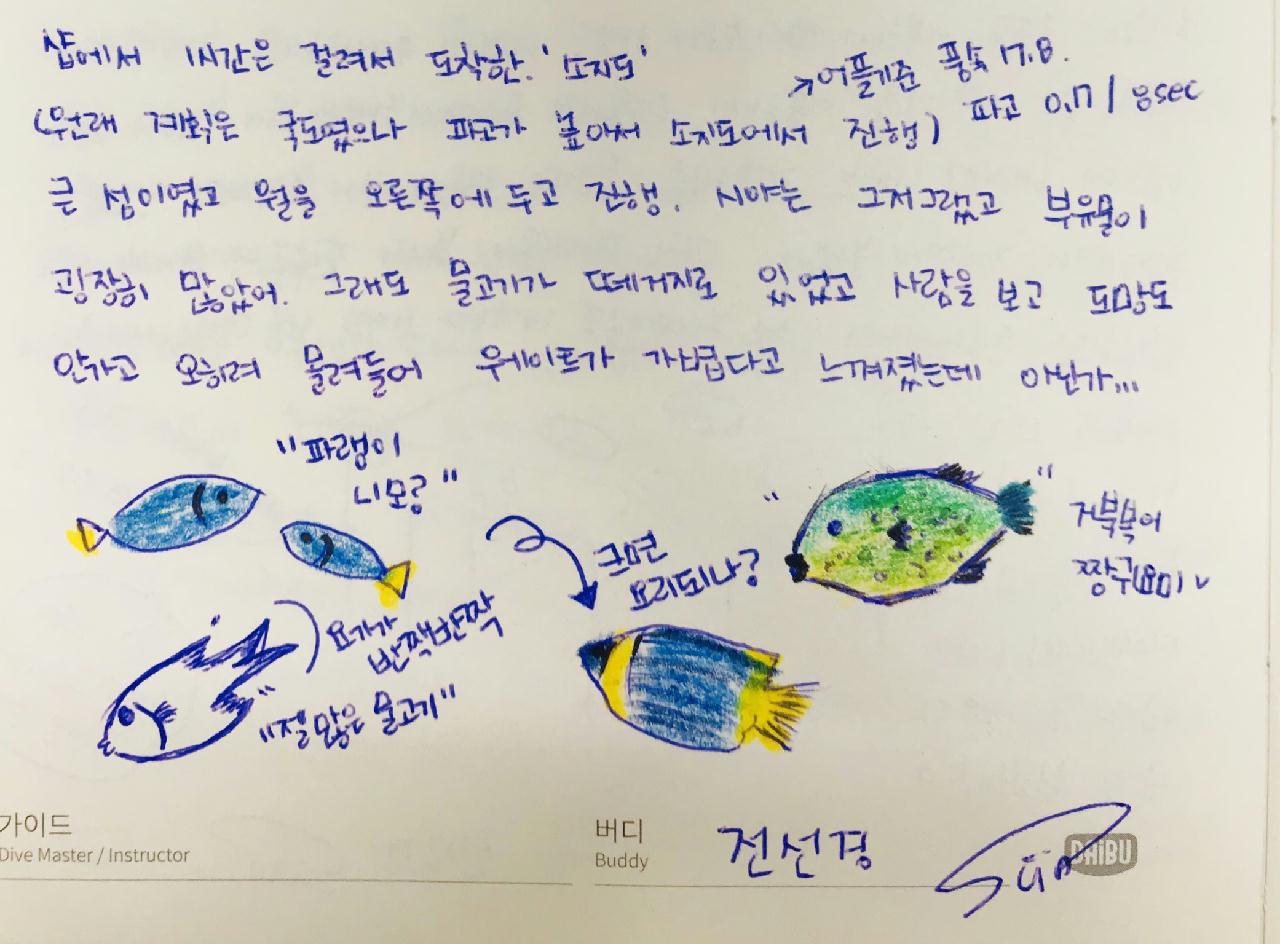 샵에서 1시간은 걸려서 도착한. '소지도'
↗어플기준 풍속 17.8.
파고 0.17 / 8sec
(원래 계획은 국도였으나 파고가 높아서 소지도에서 진행)
큰 섬이였고 월을 오른쪽에 두고 진행. 시야는 그저그랬고 부유물이
굉장히 많았어. 그래도 물고기가 떼거지로 있었고 사람을 보고 도망도
안가고 오히려 몰려들어 우웨이트가 가볍다고 느껴졌는데 아닌가...
"파랭이
니모?"
크면
요리되나?
"거북복어
짱구(요미)
요기가
반짝반짝
"절 많은 물고기"
가이드
Dive Master / Instructor
버디
Buddy
전선경
DAIBU